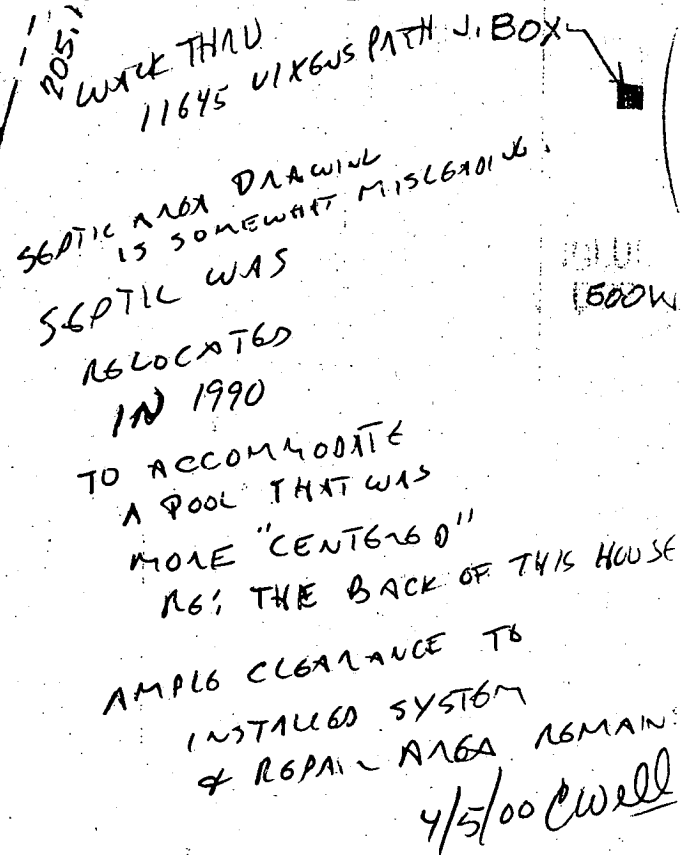 205.1
WALK THRU
11645 VIXENS PATH J. BOX
SEPTIC AREA DRAWING
IS SOMEWHAT MISLEADING.
SEPTIC WAS
RELOCATED
IN 1990
TO ACCOMMODATE
A POOL THAT WAS
MORE "CENTERED"
RE: THE BACK OF THIS HOUSE
AMPLE CLEARANCE TO
INSTALLED SYSTEM
& REPAIR AREA REMAIN
4/5/00 CWell